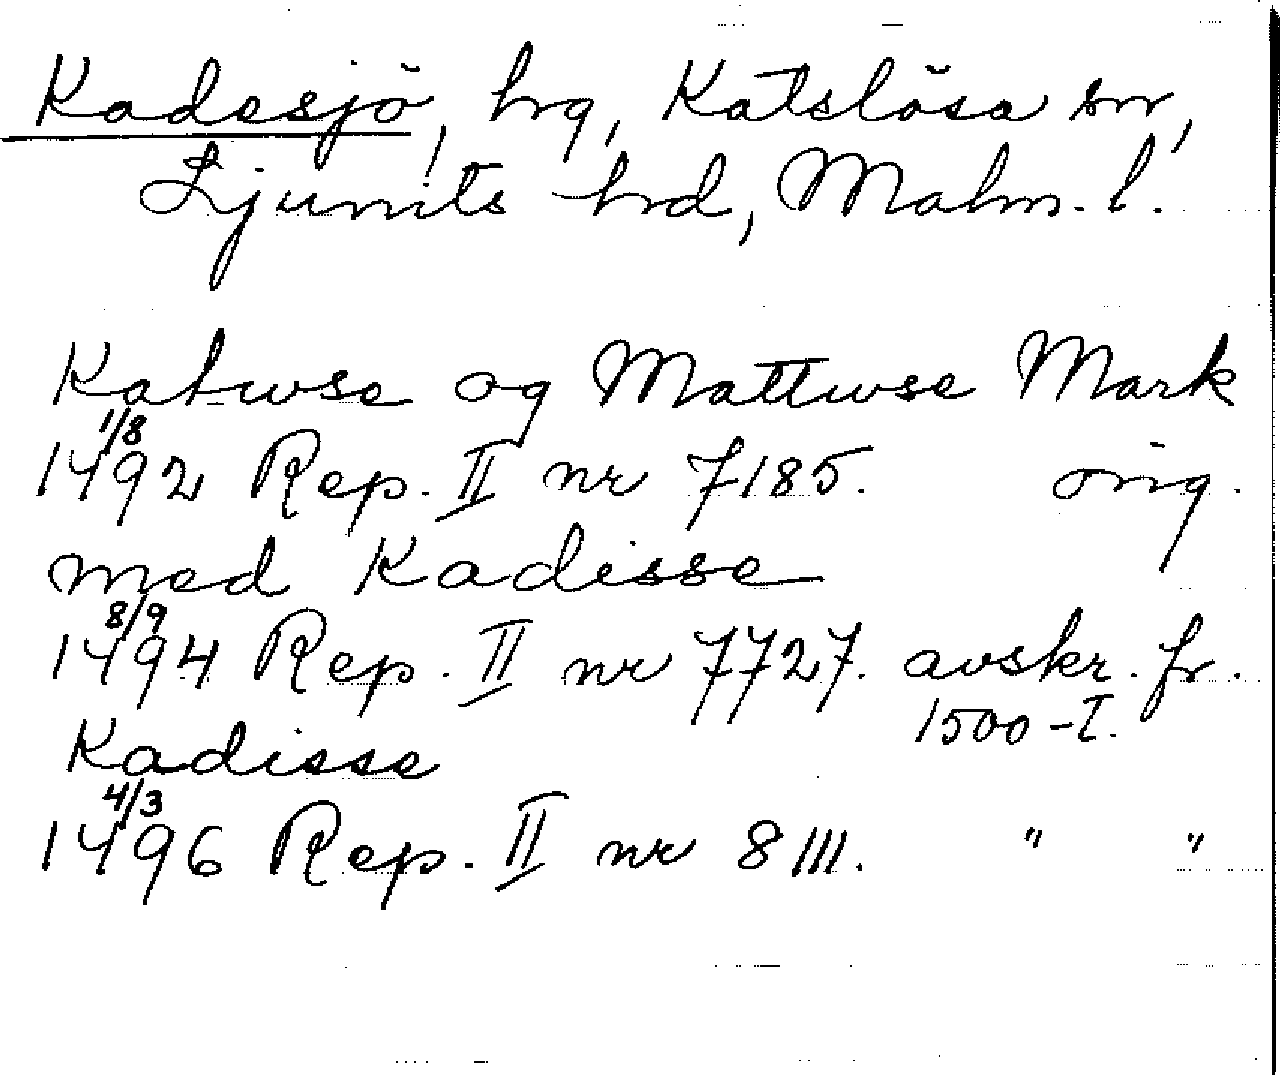 Kadesjö, hrg, Katslösa sn,
Ljunits hrd, Malm. l.
Katwse og Mattwse Mark
1/8
1492 Rep. II nr 7185. orig.
med Kadisse
8/9
1494 Rep. II nr 7727. avskr. fr.
1500-t.
Kadisse
4/3
1496 Rep. II nr 8111. " "